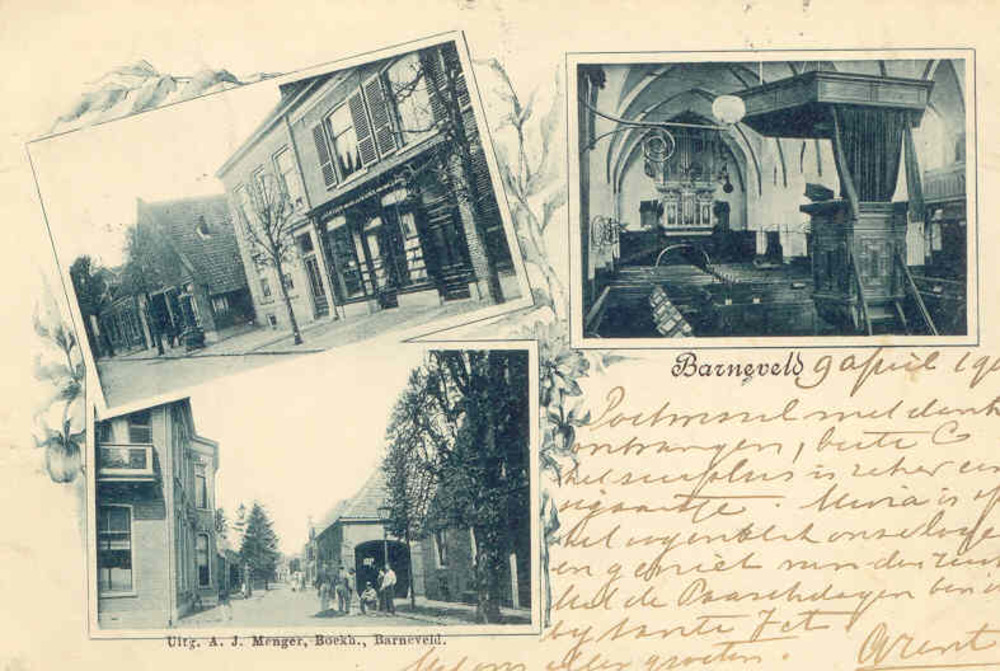 Barneveld 9 april 19
Postwissel met dank
ontvangen, beste C
het surplus is zeker een
sigaartje. Maria is op
het oogenblik onze logé
en geniet van de rust
Met de Paaschdagen ben ik
bij tante Jet
Met ons aller groeten. Arent
Uitg. A. J. Menger, Boekh., Barneveld.